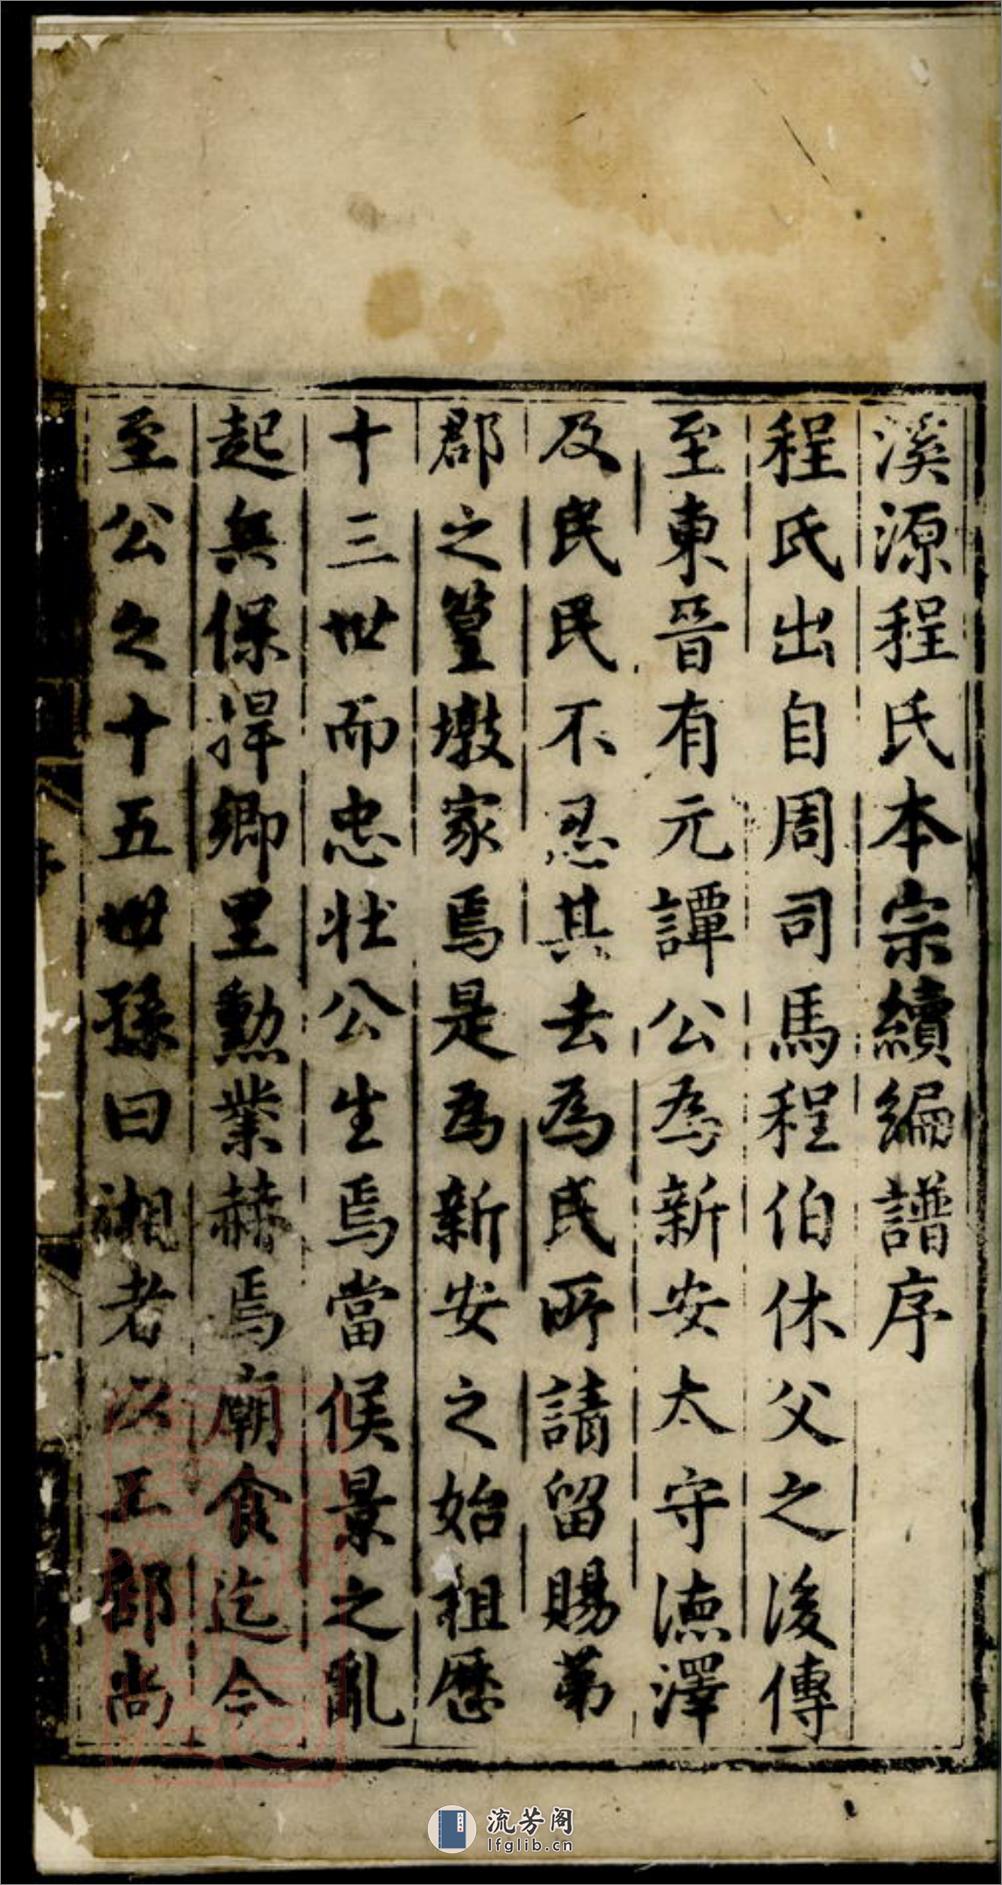 溪源程氏本宗續編譜序
程氏出自周司馬程伯休父之後傳
至東晉有元譚公為新安太守德澤
及民民不忍其去為民所請留賜第
郡之篁墩家焉是為新安之始祖歷
十三世而忠壯公生焉當侯景之亂
起兵保捍鄉里勳業赫焉廟食迄今
至公之十五世孫曰湘老以工部尚
流芳阁
lfglib.cn